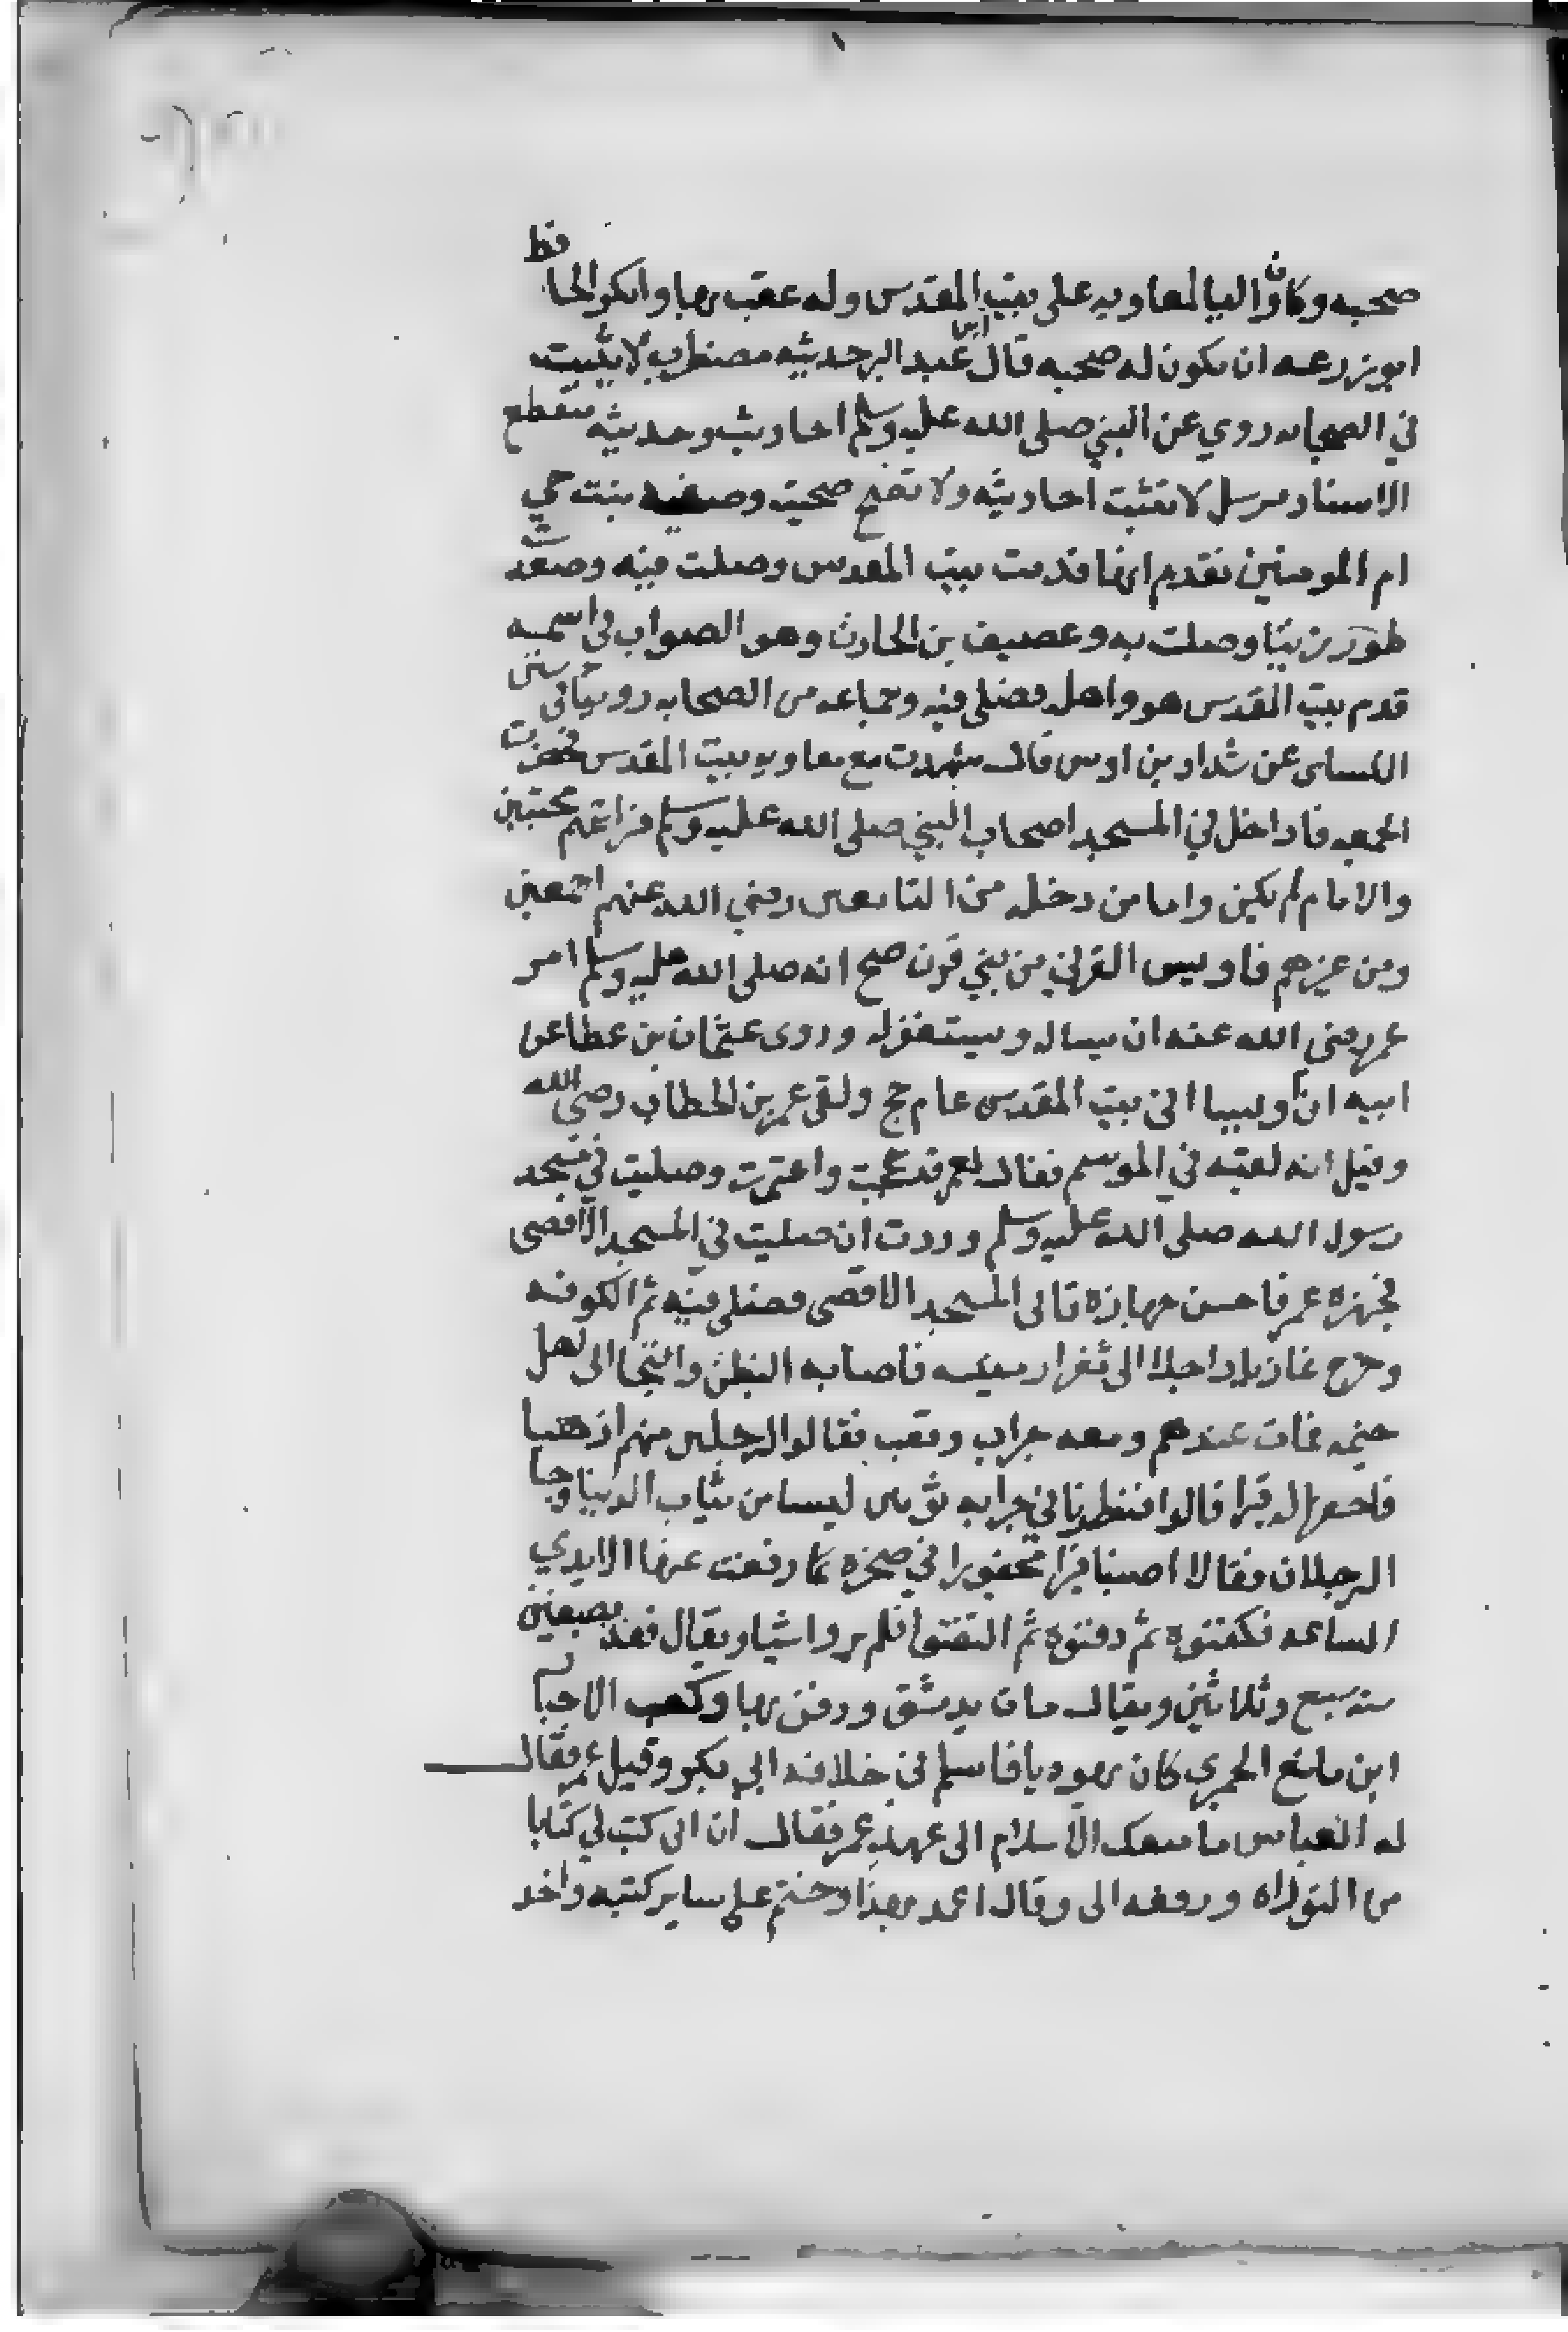 صحبه وكان واليا لمعاويه على بيت المقدس وله عقب بها وانكر الحافظ
ابو زرعه ان يكون له صحبه قال ابن عبد البر حديثه مضطرب لا يثبت
في الصحابه روي عن النبي صلى الله عليه وسلم احاديث وحديثه منقطع
الاسناد مرسل لا تثبت احاديثه ولا تصح صحبته وصفيه بنت حي
ام المومنين تقدم انها قدمت بيت المقدس وصلت فيه وصعدت
طور زيتا وصلت به وعصيف بن الحارث وهو الصواب في اسمه
قدم بيت المقدس هو واهله فصلى فيه وجماعه من الصحابه روينا في سنن
النساى عن شداد بن اوس قال شهدت مع معاويه بيت المقدس فحضرت
الجمعه فاذا جل في المسجد اصحاب النبي صلى الله عليه وسلم فرايتهم محتبين
والامام لم يكن واما من دخله من التابعين رضي الله عنهم اجمعين
ومن غيرهم فاويس القرني من بني قرن صح انه صلى الله عليه وسلم امر
عمر رضي الله عنه ان يساله ويستغفر له وروى عثمان بن عطا عن
ابيه ان اويسا اتى بيت المقدس عام حج ولقى عمر بن الخطاب رضي الله
وقيل انه لقيه في الموسم فقال لعمر قد حججت واعتمرت وصليت في مسجد
رسول الله صلى الله عليه وسلم وددت ان صليت في المسجد الاقصى
فجهزه عمر فاحسن جهازه فاتى المسجد الاقصى فصلى فيه ثم الكوفه
وخرج غازيا راجلا الى ثغر ارمينيه فاصابه البطن والتجا الى اهل
خيمه فمات عندهم ومعه جراب وقعب فقالوا لرجلين منهم اذهبا
فاحفرا له قبرا قالوا فنظرنا في جرابه ثوبين ليسا من ثياب الدنيا وجا
الرجلان فقالا اصبنا قبرا محفورا في صخره كما رفعت عنها الايدي
الساعه فكفنوه ثم دفنوه ثم التفتوا فلم يروا شيا ويقال فقد بصفين
سنه سبع وثلاثين ويقال مات بدمشق ودفن بها وكعب الاحبار
ابن ماتع الحميري كان يهوديا فاسلم في خلافه ابي بكر وقيل عمر فقال
له العباس ما منعك الاسلام الى عهد عمر فقال ان ابى كتب لي كتابا
من التوراه ودفعه الى وقال اعمد بهذا وختم على ساير كتبه واخذ